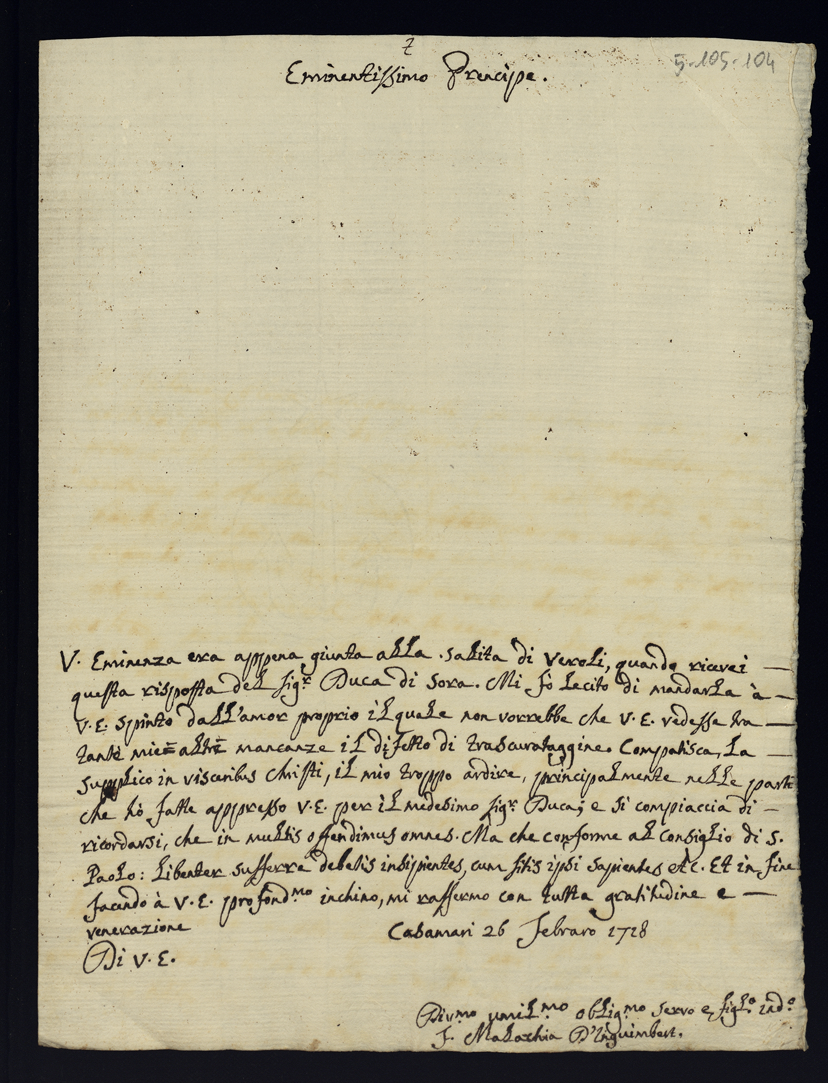 5-105-104
Eminentissimo Prencipe.
V. Eminenza era appena giunta alla salita di Veroli, quando ricevei —
questa risposta del sigr. Duca di Sora. Mi fò lecito di mandarla à —
V. E. spinto dall'amor proprio il quale non vorrebbe che V. E. vedesse tra —
tante mie altre mancanze il difetto di trascurataggine. Compatisca, La —
supplico in visceribus Christi, il mio troppo ardire, principalmente nelle parti
che hò fatte appresso V. E. per il medesimo sigr. Duca; e si compiaccia di —
ricordarsi, che in multis offendimus omnes. Ma che conforme al consiglio di S.
Paolo: libenter sufferre debetis insipientes, cum sitis ipsi sapientes etc. Et in fine
facendo à V. E. profondmo inchino, mi raffermo con tutta gratitudine e —
venerazione
Casamari 26 Febraro 1718
Di V. E.
Divmo umilmo obligmo servo e figlo indo
F. Malachia D'Inguimbert.